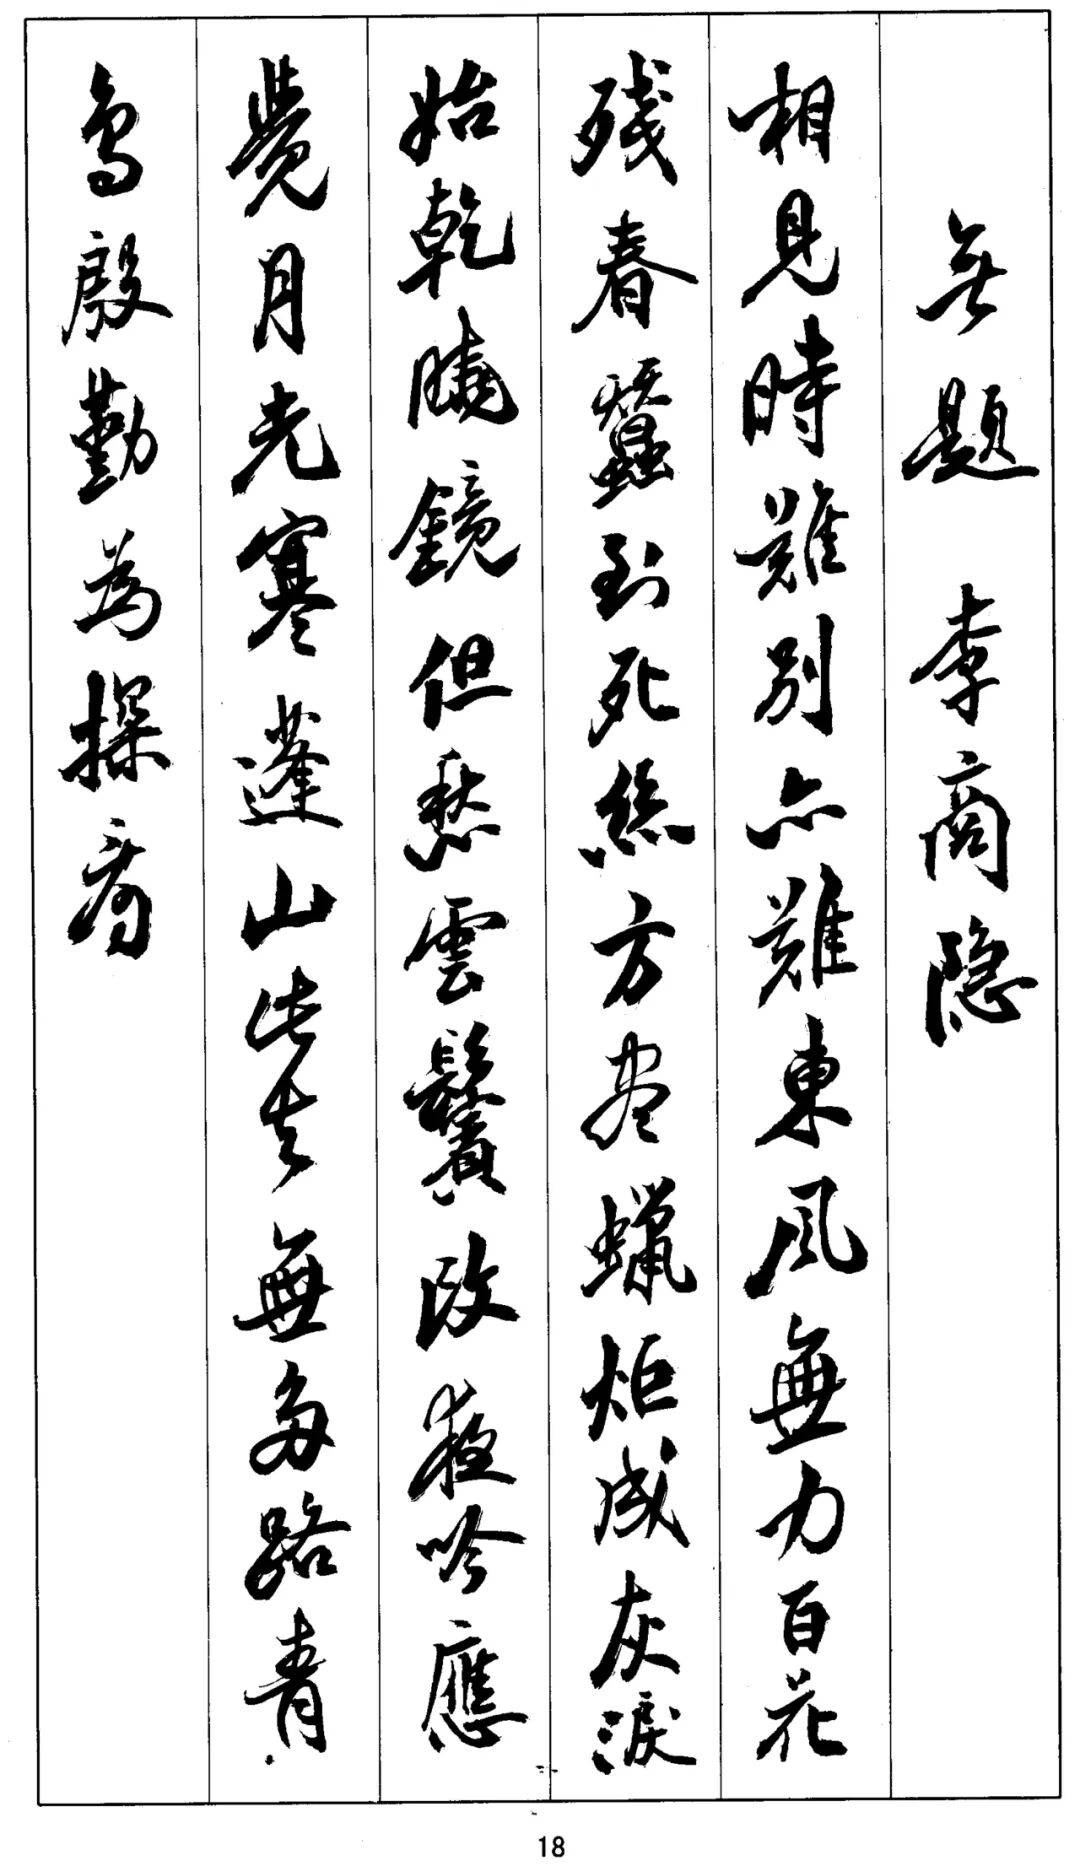 无题 李商隐
相見時難別亦難東風無力百花
残春蠶到死絲方尽蠟炬成灰淚
始乾曉鏡但愁雲鬢改夜吟應
覺月光寒蓬山此去無多路青
鳥殷勤為探看
18